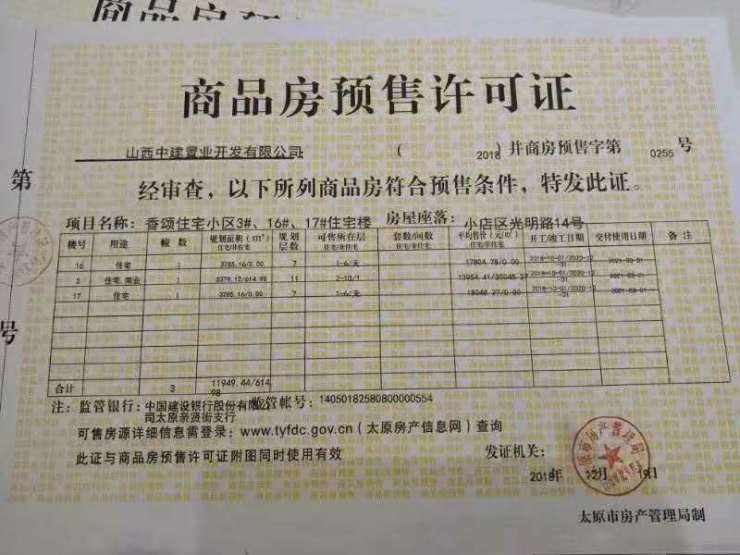 商品房预
商品房预售许可证
山西中建置业开发有限公司 ( 2018 ) 并商房预售字第 0255 号
第
经审查，以下所列商品房符合预售条件，特发此证。
项目名称：香颂住宅小区3#、16#、17#住宅楼 房屋座落：小店区光明路14号
楼号 用途 幢数 规划面积（m²）住宅/非住宅 规划层数 可售所在层 住宅/非住宅 套数/间数 住宅/非住宅 平均售价（元/㎡）住宅/非住宅 开工/竣工日期 交付使用日期 备注
16 住宅 1 3285.16/0.00 7 1-6/无 17804.78/0.00 2018-10-01/2020-12-31
3 住宅,商业 1 5379.12/614.98 11 2-10/1 2018-10-01/2020-12-31
17 住宅 1 3285.16/0.00 7 1-6/无 18048.27/0.00 2018-10-01/2020-12-31
号
合计 3 11949.44/614.98
注：监管银行：中国建设银行股份有限公司太原亲贤街支行 监管帐号：14050182580800000554
可售房源详细信息需登录：www.tyfdc.gov.cn（太原房产信息网）查询
此证与商品房预售许可证附图同时使用有效 发证机关：
太原市房产管理局
2018年 12月 19日
太原市房产管理局制